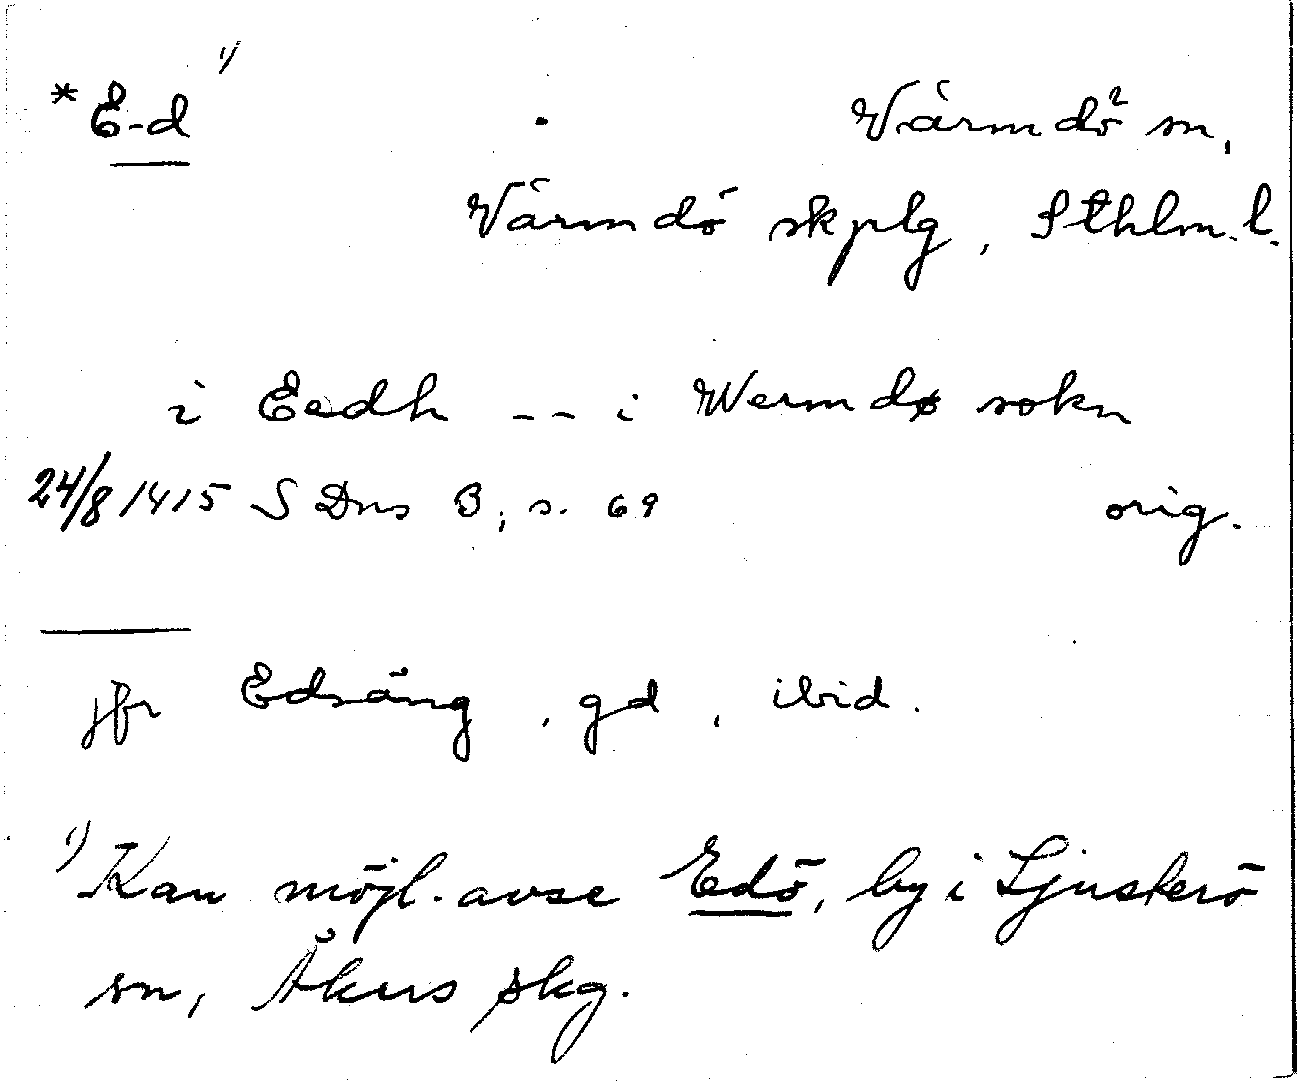 *E-d 1) Värmdö2 sn,
Värmdö skplg, Sthlm.l.
i Eedh -- i Wermdø sokn
24/8 1415 SDns 3, s. 69 orig.
jfr Edsäng, gd, ibid.
1) Kan möjl. avse Edö, by i Ljusterö
sn, Åkers skg.